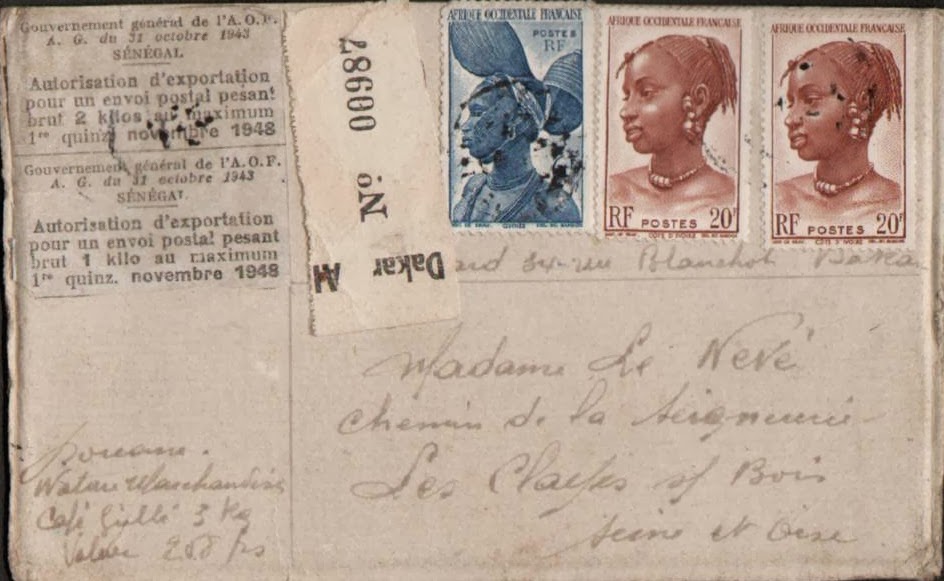 Gouvernement général de l'A.O.F.
A. G. du 31 octobre 1943
SÉNÉGAL
Autorisation d'exportation
pour un envoi postal pesant
brut 2 kilos au maximum
1re quinz. novembre 1948
Gouvernement général de l'A.O.F.
A. G. du 31 octobre 1943
SÉNÉGAL
Autorisation d'exportation
pour un envoi postal pesant
brut 1 kilo au maximum
1re quinz. novembre 1948
No 00987
Dakar
AFRIQUE OCCIDENTALE FRANÇAISE
POSTES
RF
GUINÉE
AFRIQUE OCCIDENTALE FRANÇAISE
RF POSTES 20F
CÔTE D'IVOIRE
AFRIQUE OCCIDENTALE FRANÇAISE
RF POSTES 20F
CÔTE D'IVOIRE
34 rue Blanchot
Madame Le Nevé
Chemin de la Seigneurie
Les Clayes s/ Bois
Seine et Oise
Douane
Nature Marchandise
Café 3 Kg
Valeur